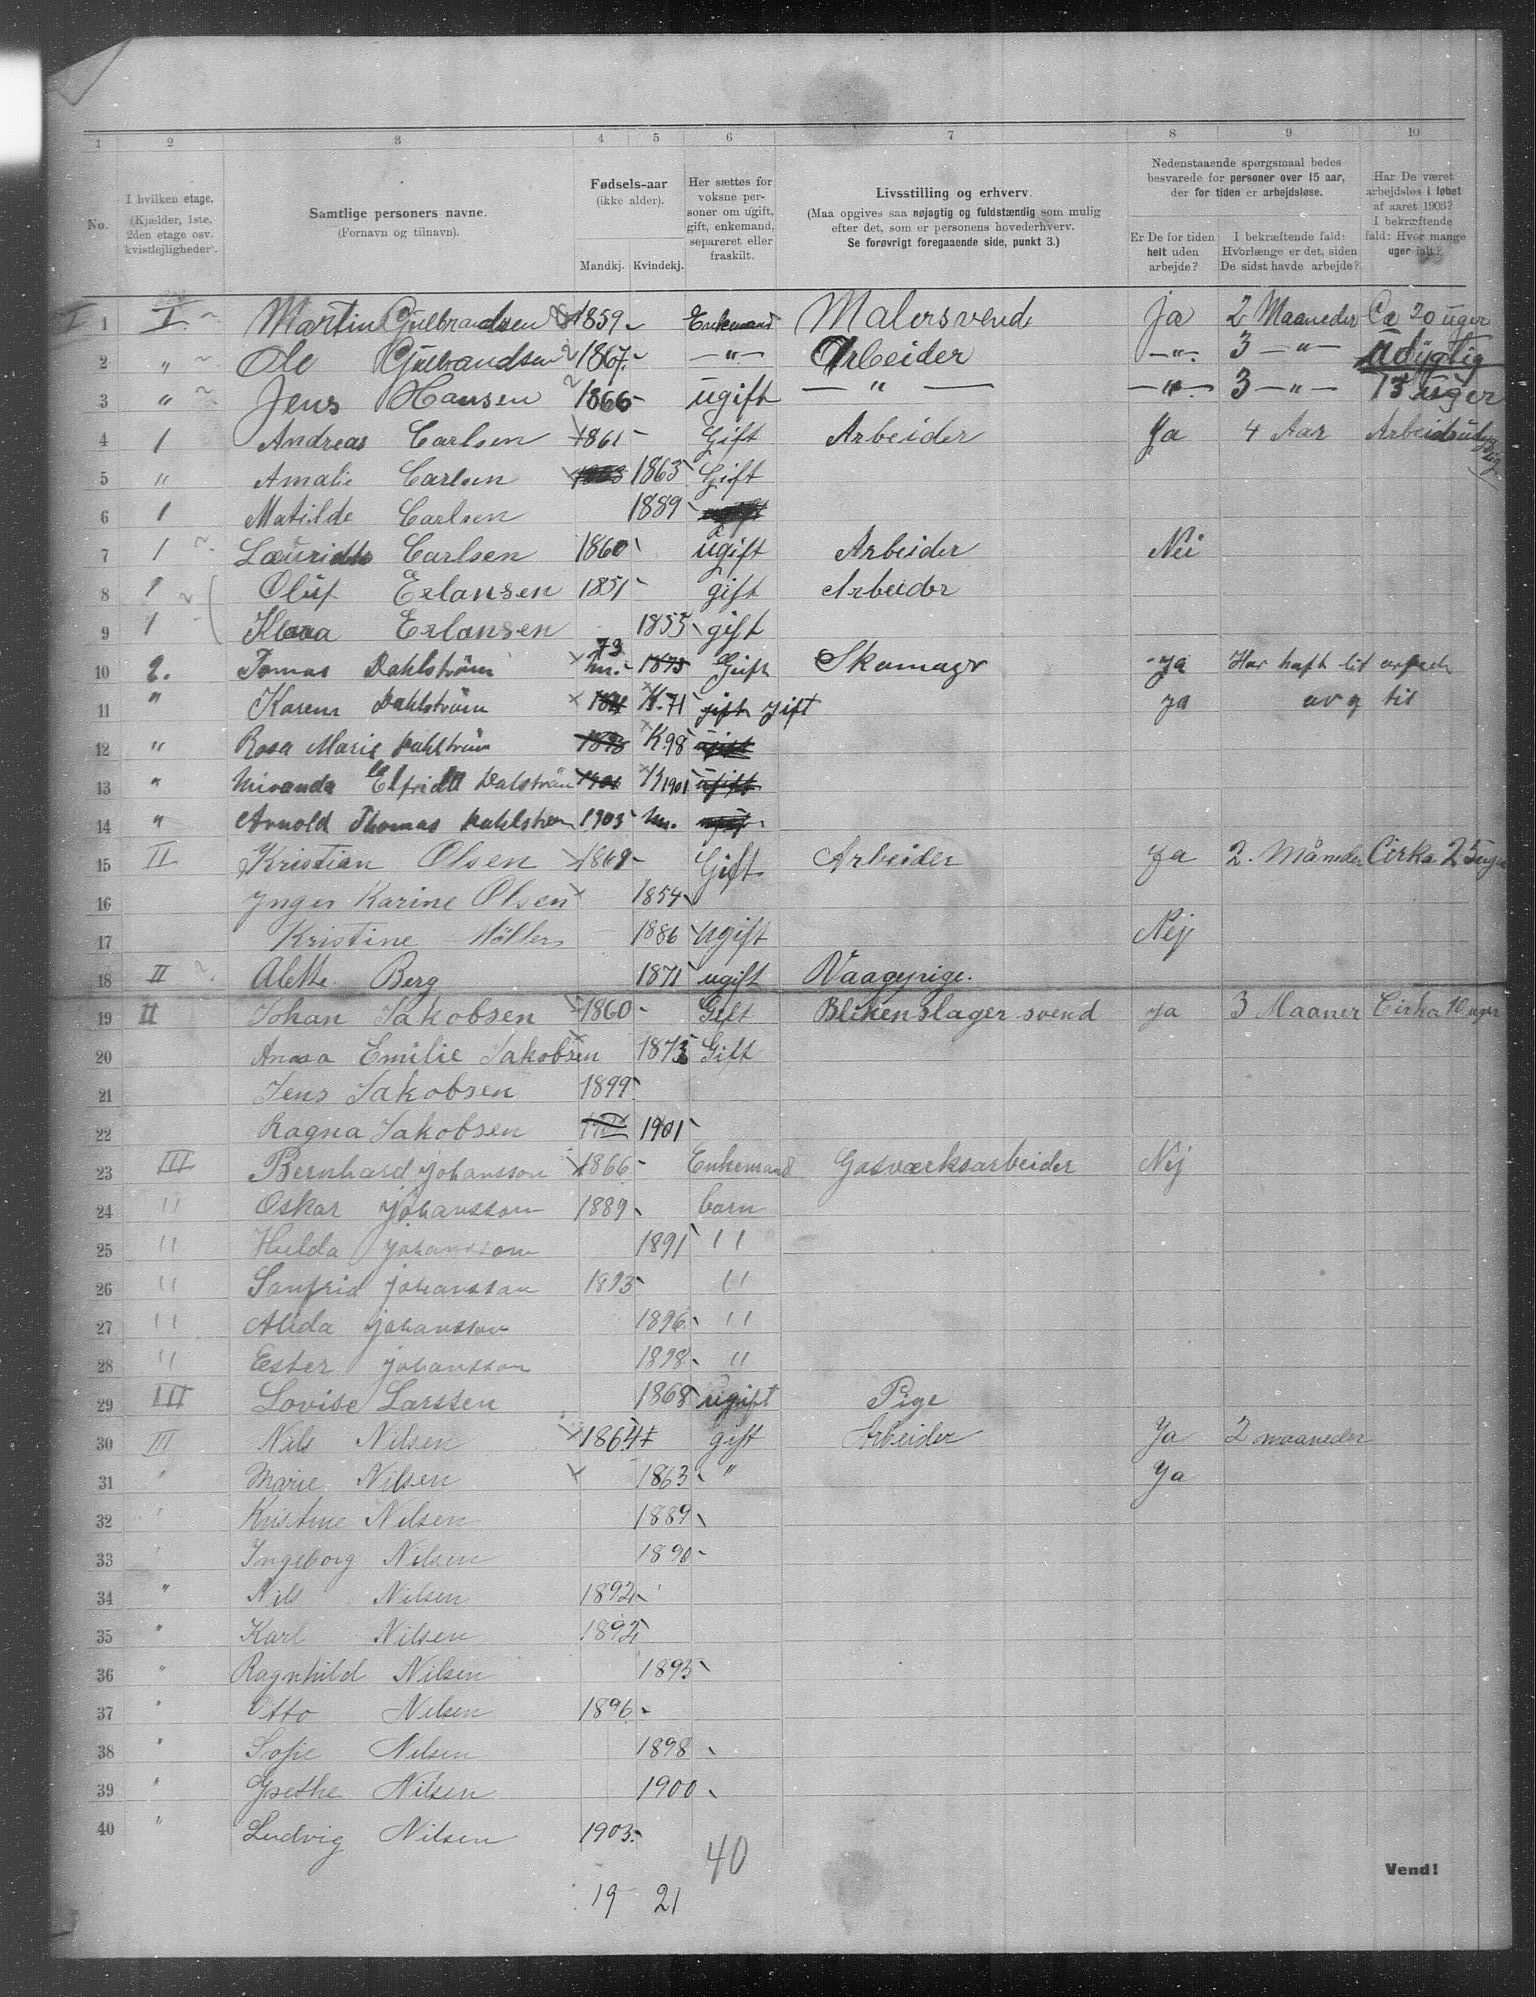 1 2 3 4 5 6 7 8 9 10
No.
I hvilken etage.
(Kjælder, 1ste,
2den etage osv.
kvistleiligheder).
Samtlige personers navne.
(Fornavn og tilnavn).
Fødsels-aar
(ikke alder).
Mandkj. Kvindekj.
Her sættes for
voksne per-
soner om ugift,
gift, enkemand,
separeret eller
fraskilt.
Livsstilling og erhverv.
(Maa opgives saa nøjagtig og fuldstændig som mulig
efter det, som er personens hovederhverv.
Se forøvrigt foregaaende side, punkt 3.)
Nedenstaaende spørgsmaal bedes
besvarede for personer over 15 aar,
der for tiden er arbejdsløse.
Er De for tiden
helt uden
arbejde?
I bekræftende fald:
Hvorlænge er det, siden
De sidst havde arbejde?
Har De været
arbejdsløs i løbet
af aaret 1903?
I bekræftende
fald: Hvor mange
uger ialt?
I 1 I. Martin Gulbrandsen 1859 Enkemand Malersvend Ja 2 Maaneder Ca 20 uger
2 " Ole Gulbrandsen 1867. —"— Arbeider —"— 3 —"— Udygtig
3 " Jens Hansen 1866 ugift — " — —"— 3 —"— 15 uger
4 1 Andreas Carlsen 1861 Gift Arbeider Ja 4 Aar Arbeidsudygtig
5 " Amalie Carlsen 1863 Gift
6 1 Matilde Carlsen 1889
7 1 Lauridts Carlsen 1860 ugift Arbeider Nei
8 1 Oluf Erlansen 1851 gift Arbeider
9 1 Klara Erlansen 1855 gift
10 2. Tomas Dahlström m. 73 1873 Gift Skomager ja Har haft lit arbeide
11 " Karen Dahlström K. 71 gift gift ja av og til
12 " Rosa Marie Dahlström 1898 K 98 ugift
13 " Miranda Elfrida Dalström 1901 K 1901 ugift
14 " Arnold Thomas Dahlström 1903 m.
15 II Kristian Olsen 1869 Gift Arbeider Ja 2. Måneder Cirka 25 uger
16 Ynger Karine Olsen 1854
17 Kristine Möller 1886 Ugift Nej
18 II Alette Berg 1871 ugift
19 II Johan Jakobsen 1860 Gift Blikenslager svend ja 3 Maaner Cirka 10 uger
20 Anna Emilie Jakobsen 1873 Gift
21 Jens Jakobsen 1899
22 Ragna Jakobsen 1901
23 III Bernhard Johansson 1866 Enkemand Gasværksarbeider Nej
24 " Oskar Johansson 1889 barn
25 " Hulda Johansson 1891 "
26 " Sanfrid Johansson 1893 "
27 " Alida Johansson 1896 "
28 " Ester Johansson 1898 "
29 III Lovise Larssen 1868 ugift Pige
30 III Nils Nilsen 1864 gift Arbeider Ja 2 maaneder
31 " Marie Nilsen 1863 " Ja
32 " Kristine Nilsen 1889
33 " Ingeborg Nilsen 1890
34 " Nils Nilsen 1892
35 " Karl Nilsen 1892
36 " Ragnhild Nilsen 1895
37 " Otto Nilsen 1896
38 " Sofie Nilsen 1898
39 " Grethe Nilsen 1900
40 " Ludvig Nilsen 1903
40
Vend!
19 21